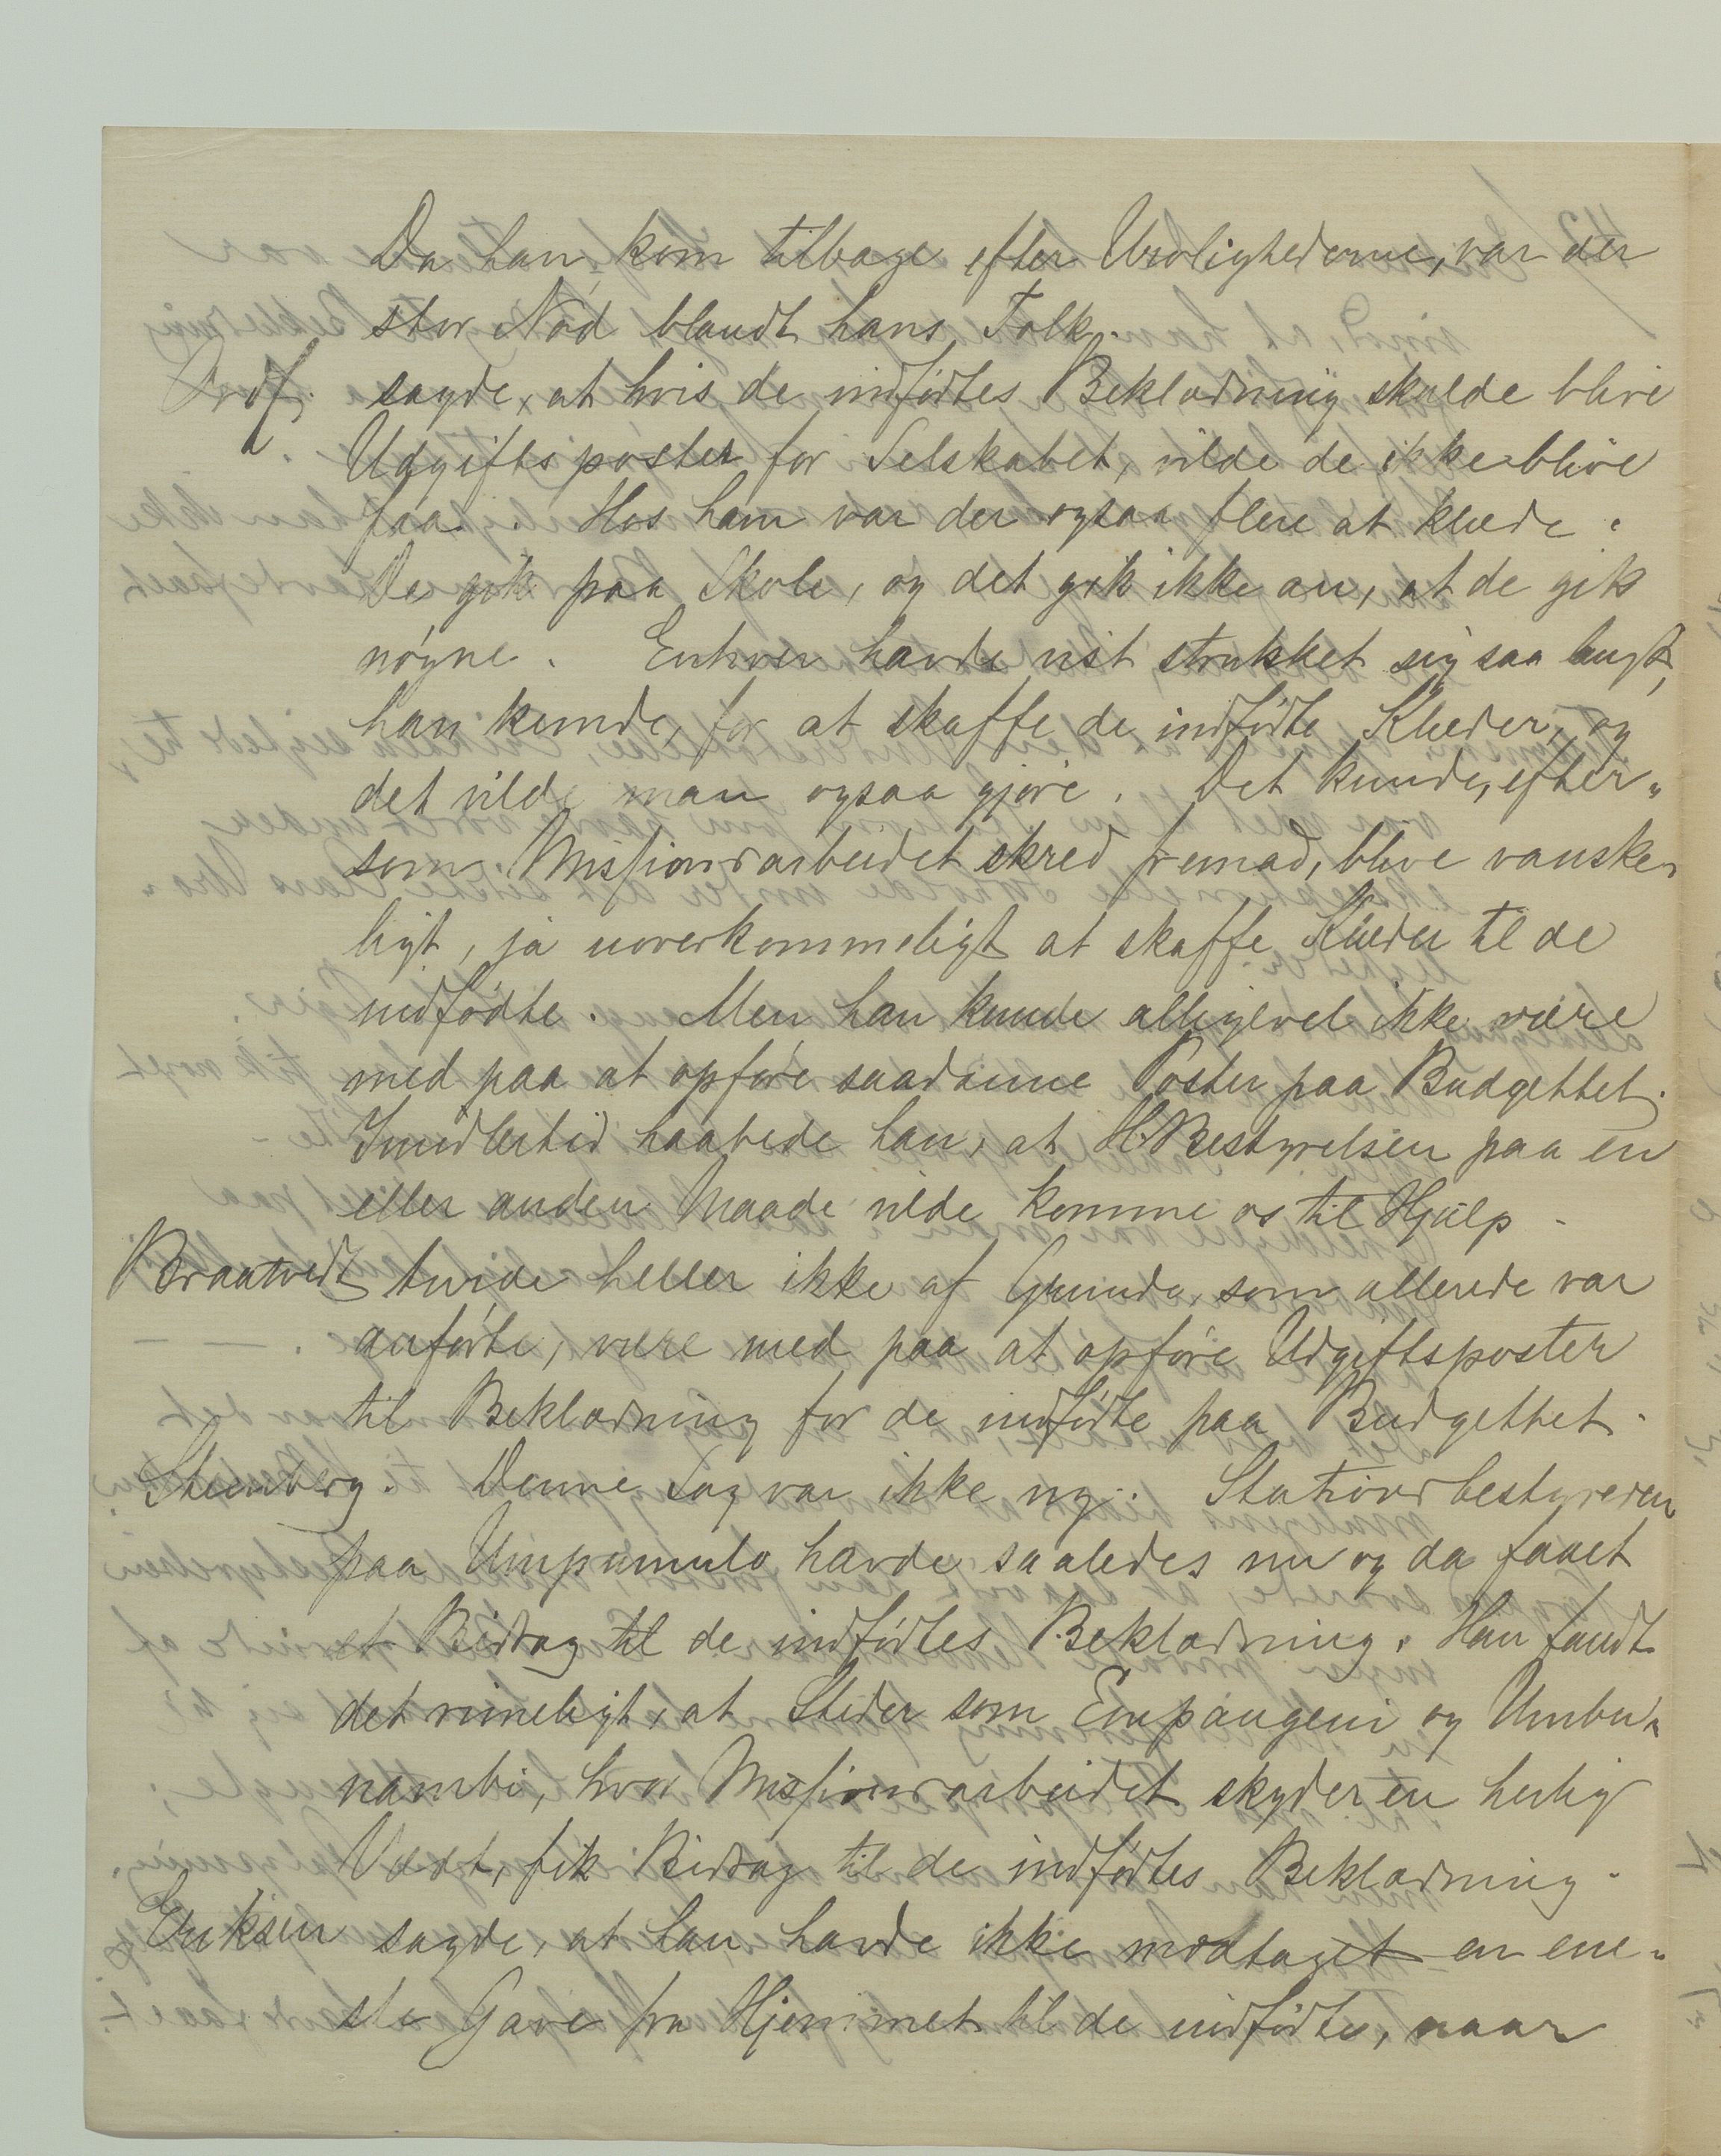 Da han kom tilbage efter Urolighederne, var der
stor Nød blandt hans Folk.
Ordf. sagde, at hvis de indfødtes Beklædning skulde blive
Udgiftsposter for Selskabet, vilde de ikke blive
faa. Hos ham var der ogsaa flere at klæde.
De gik paa Skole, og det gik ikke an, at de gik
nøgne. Enhver havde vist strukket sig saa langt,
han kunde, for at skaffe de indfødte Klæder, og
det vilde man ogsaa gjøre. Det kunde, efter-
som Missionsarbeidet skred fremad, blive vanske-
ligt, ja uoverkommeligt at skaffe Klæder til de
indfødte. Men han kunde alligevel ikke være
med paa at opføre saadanne Poster paa Budgettet.
Imidlertid haabede han, at H.Bestyrelsen paa en
eller anden Maade vilde komme os til Hjælp.
Braatvedt turde heller ikke af Grunde, som allerede var
anførte, være med paa at opføre Udgiftsposter
til Beklædning for de indfødte paa Budgettet.
Steenberg. Denne Sag var ikke ny. Stationsbestyreren
paa Umpumulo havde saaledes nu og da faaet
et Bidrag til de indfødtes Beklædning. Han fandt
det rimeligt, at Steder som Empangeni og Umbu-
nambi, hvor Missionsarbeidet skyder en herlig
Vækst, fik Bidrag til de indfødtes Beklædning.
Eriksen sagde, at han havde ikke modtaget en ene-
ste Gave fra Hjemmet til de indfødte, naar